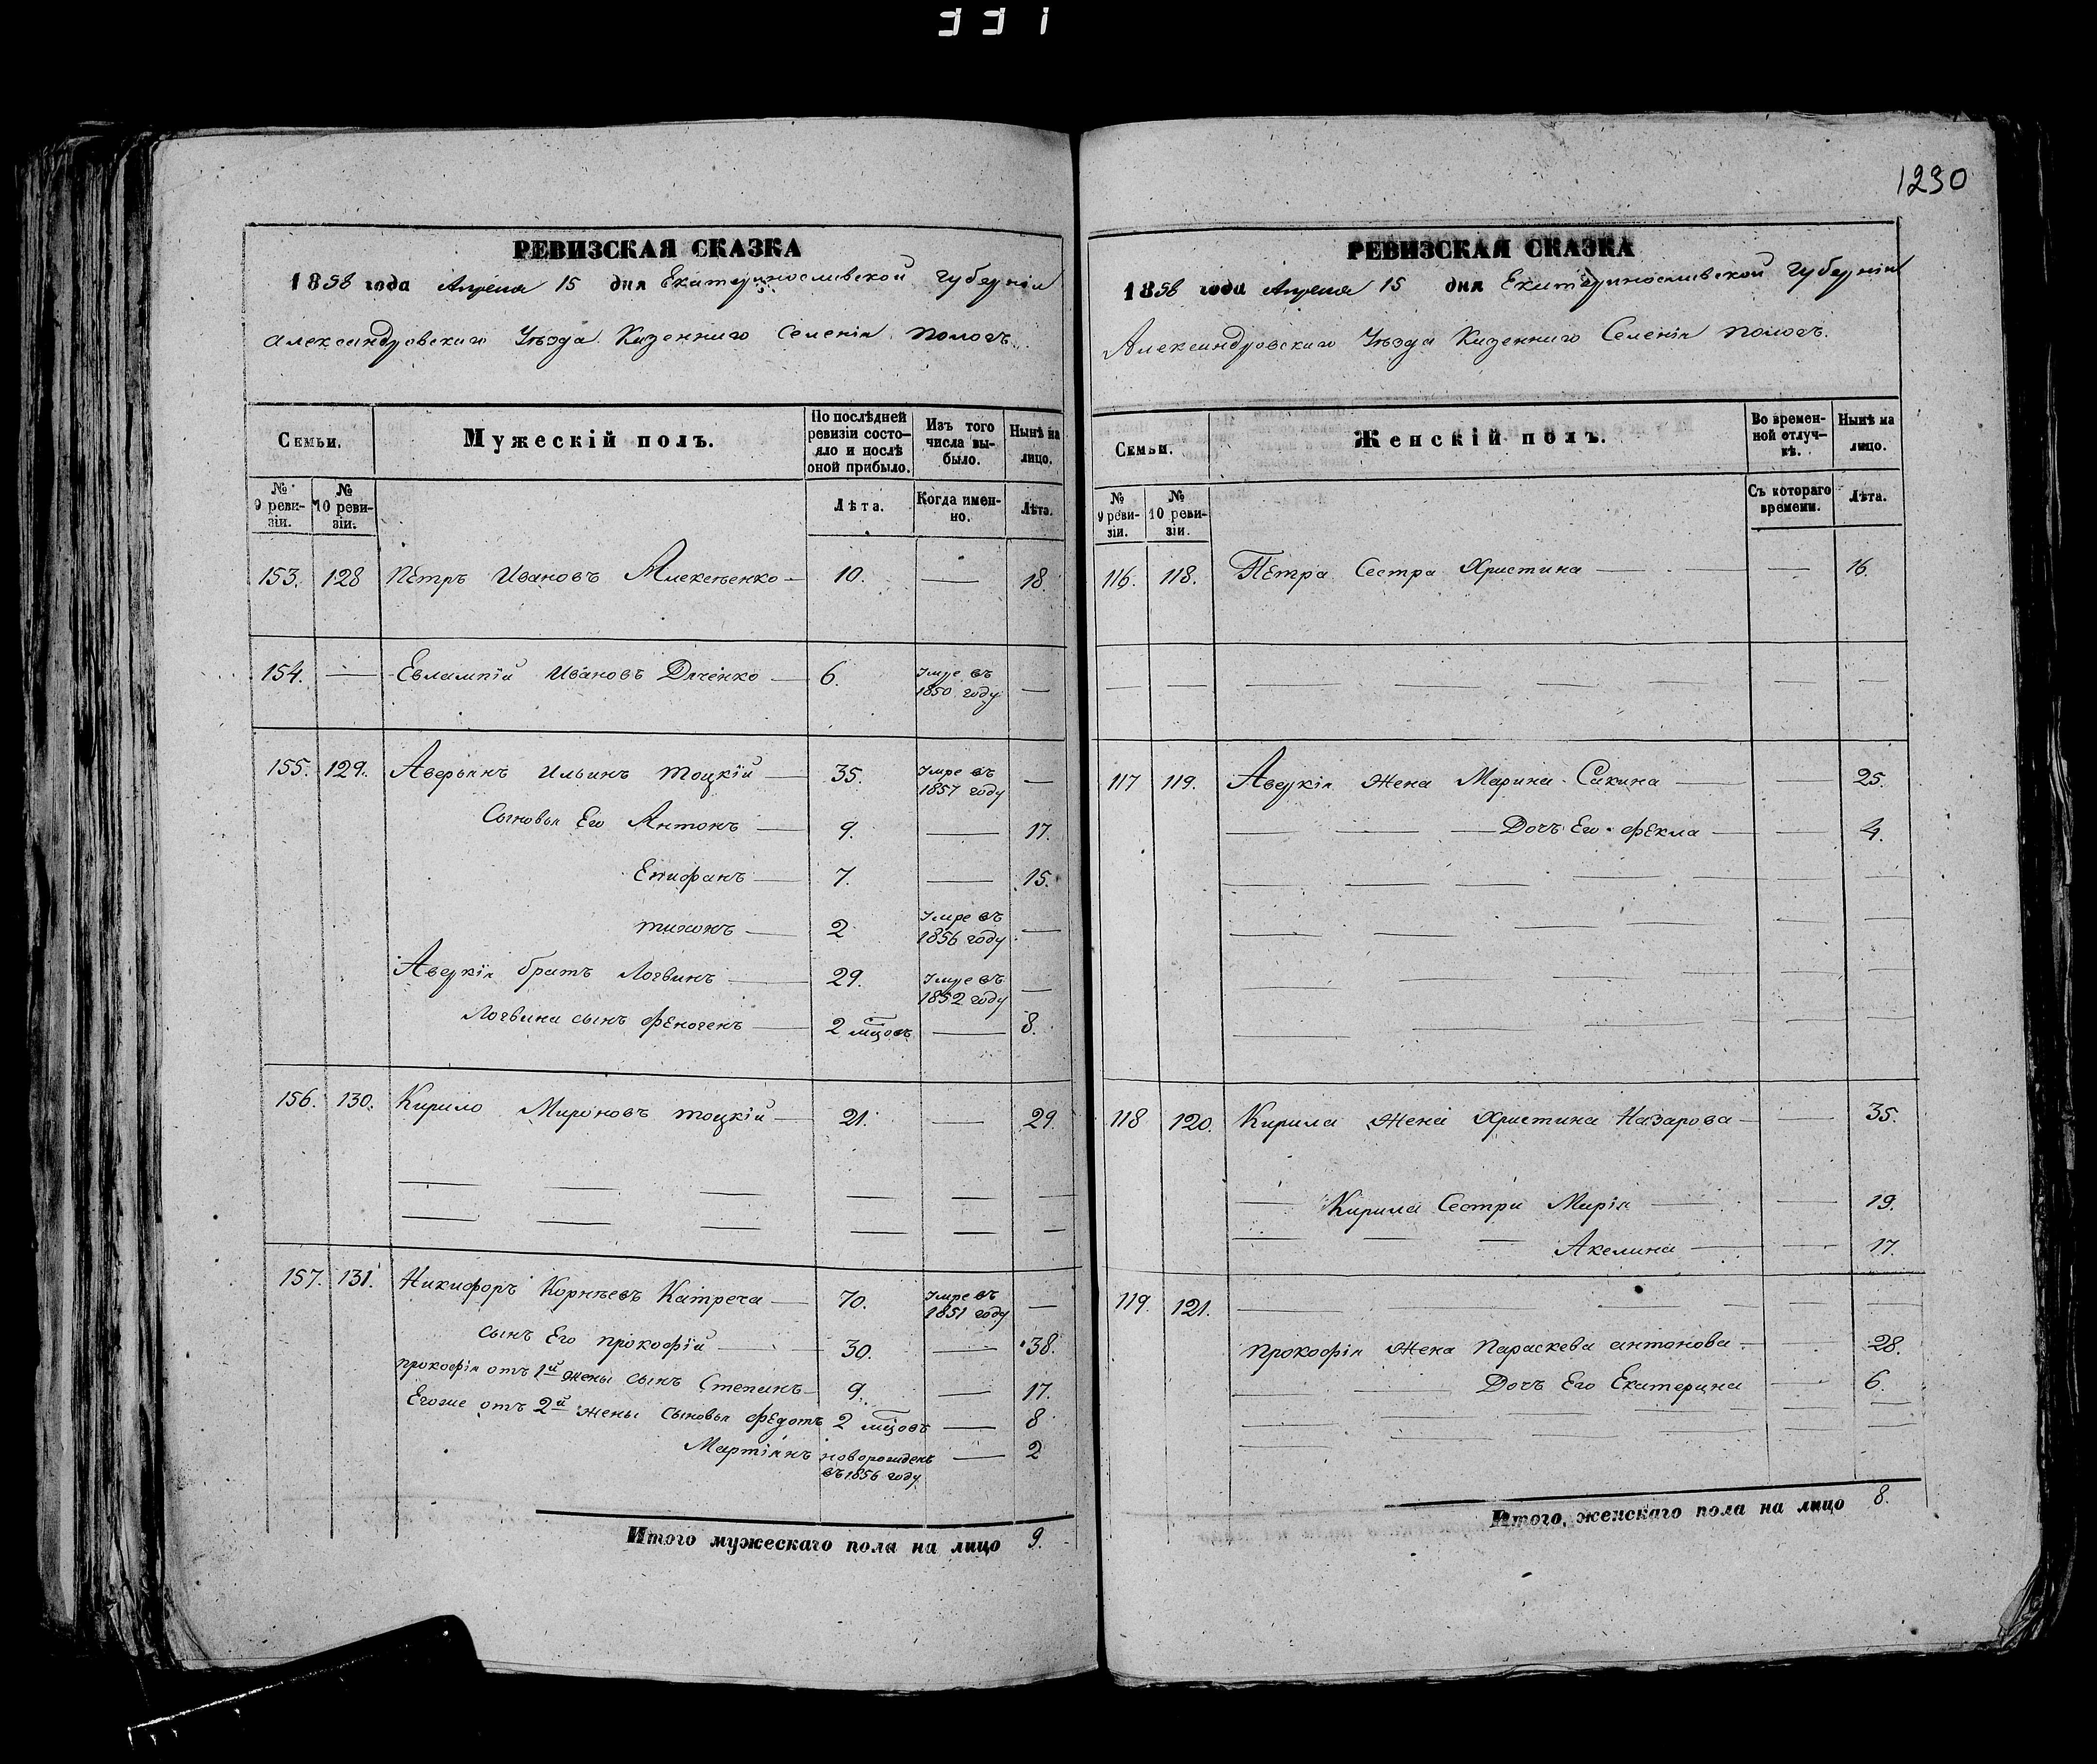 331
1230
РЕВИЗСКАЯ СКАЗКА
1858 года Апреля 15 дня Екатеринославской Губерніи
Александровскаго Уѣзда Казеннаго Селенія Пологъ.
Семьи.
Мужескій полъ.
По послѣдней ревизіи состояло и послѣ оной прибыло.
Изъ того числа выбыло.
Нынѣ на лицо.
№ 9 ревизіи.
№ 10 ревизіи.
Лѣта.
Когда именно.
Лѣта.
153. 128 Пётръ Ивановъ Алексѣенко — 10. — 18.
154. — Евлампій Ивановъ Дяченко — 6. Умре въ 1850 году —
155. 129. Аверьянъ Ильинъ Тоцкій — 35. Умре въ 1857 году —
Сыновья Его Антонъ — 9. — 17.
Епифанъ — 7. — 15.
Тихонъ — 2 Умре въ 1856 году —
Аверкія братъ Логвинъ — 29. Умре въ 1852 году —
Логвина сынъ Феногенъ — 2 мцовъ — 8.
156. 130. Кирило Мироновъ Тоцкій — 21. — 29.
157. 131. Никифоръ Корнѣевъ Катреча — 70. Умре въ 1851 году —
сынъ Его Прокофій — 30. — 38.
Прокофія отъ 1й жены сынъ Степанъ — 9. — 17.
Егоже отъ 2й жены сыновья Федотъ 2 мцовъ — 8
Мартіянъ новорожденъ въ 1856 году — 2
Итого мужескаго пола на лицо 9.
РЕВИЗСКАЯ СКАЗКА
1858 года Апреля 15 дня Екатеринославской Губерніи
Александровскаго Уѣзда Казеннаго Селенія Пологъ.
Семьи.
Женскій полъ.
Во временной отлучкѣ.
Нынѣ на лицо.
№ 9 ревизіи.
№ 10 ревизіи.
Съ котораго времени.
Лѣта.
116. 118. Пётра Сестра Христина — — 16.
117 119. Аверкія Жена Марина Сакина — — 25.
Дочъ Его Фекла — — 4.
118 120. Кирила Жена Христина Назарова — — 35.
Кирила Сестры Марія — — 19.
Акелина — — 17.
119. 121.
Прокофія Жена Параскева Антонова — — 28.
Дочъ Его Екатерина — 6.
Итого женскаго пола на лицо 8.